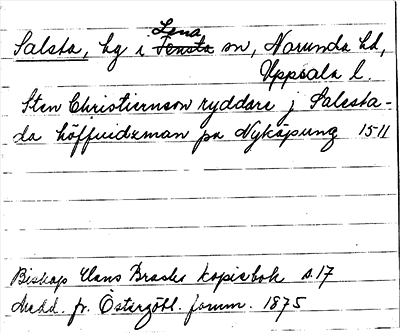 Lena
Salsta, hg i Tensta sn, Norunda hd,
Uppsala l.
Sten Christiernson ryddare j Salesta-
da höffuidzman pa Nyköpung 1511
Biskop Hans Brasks kopiebok s. 17
Medd. fr. Östergötl. fornm. 1875